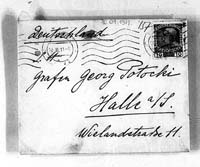 Deutschland
Grafen Georg Potocki
Halle a/S.
Wielandstraße 11.